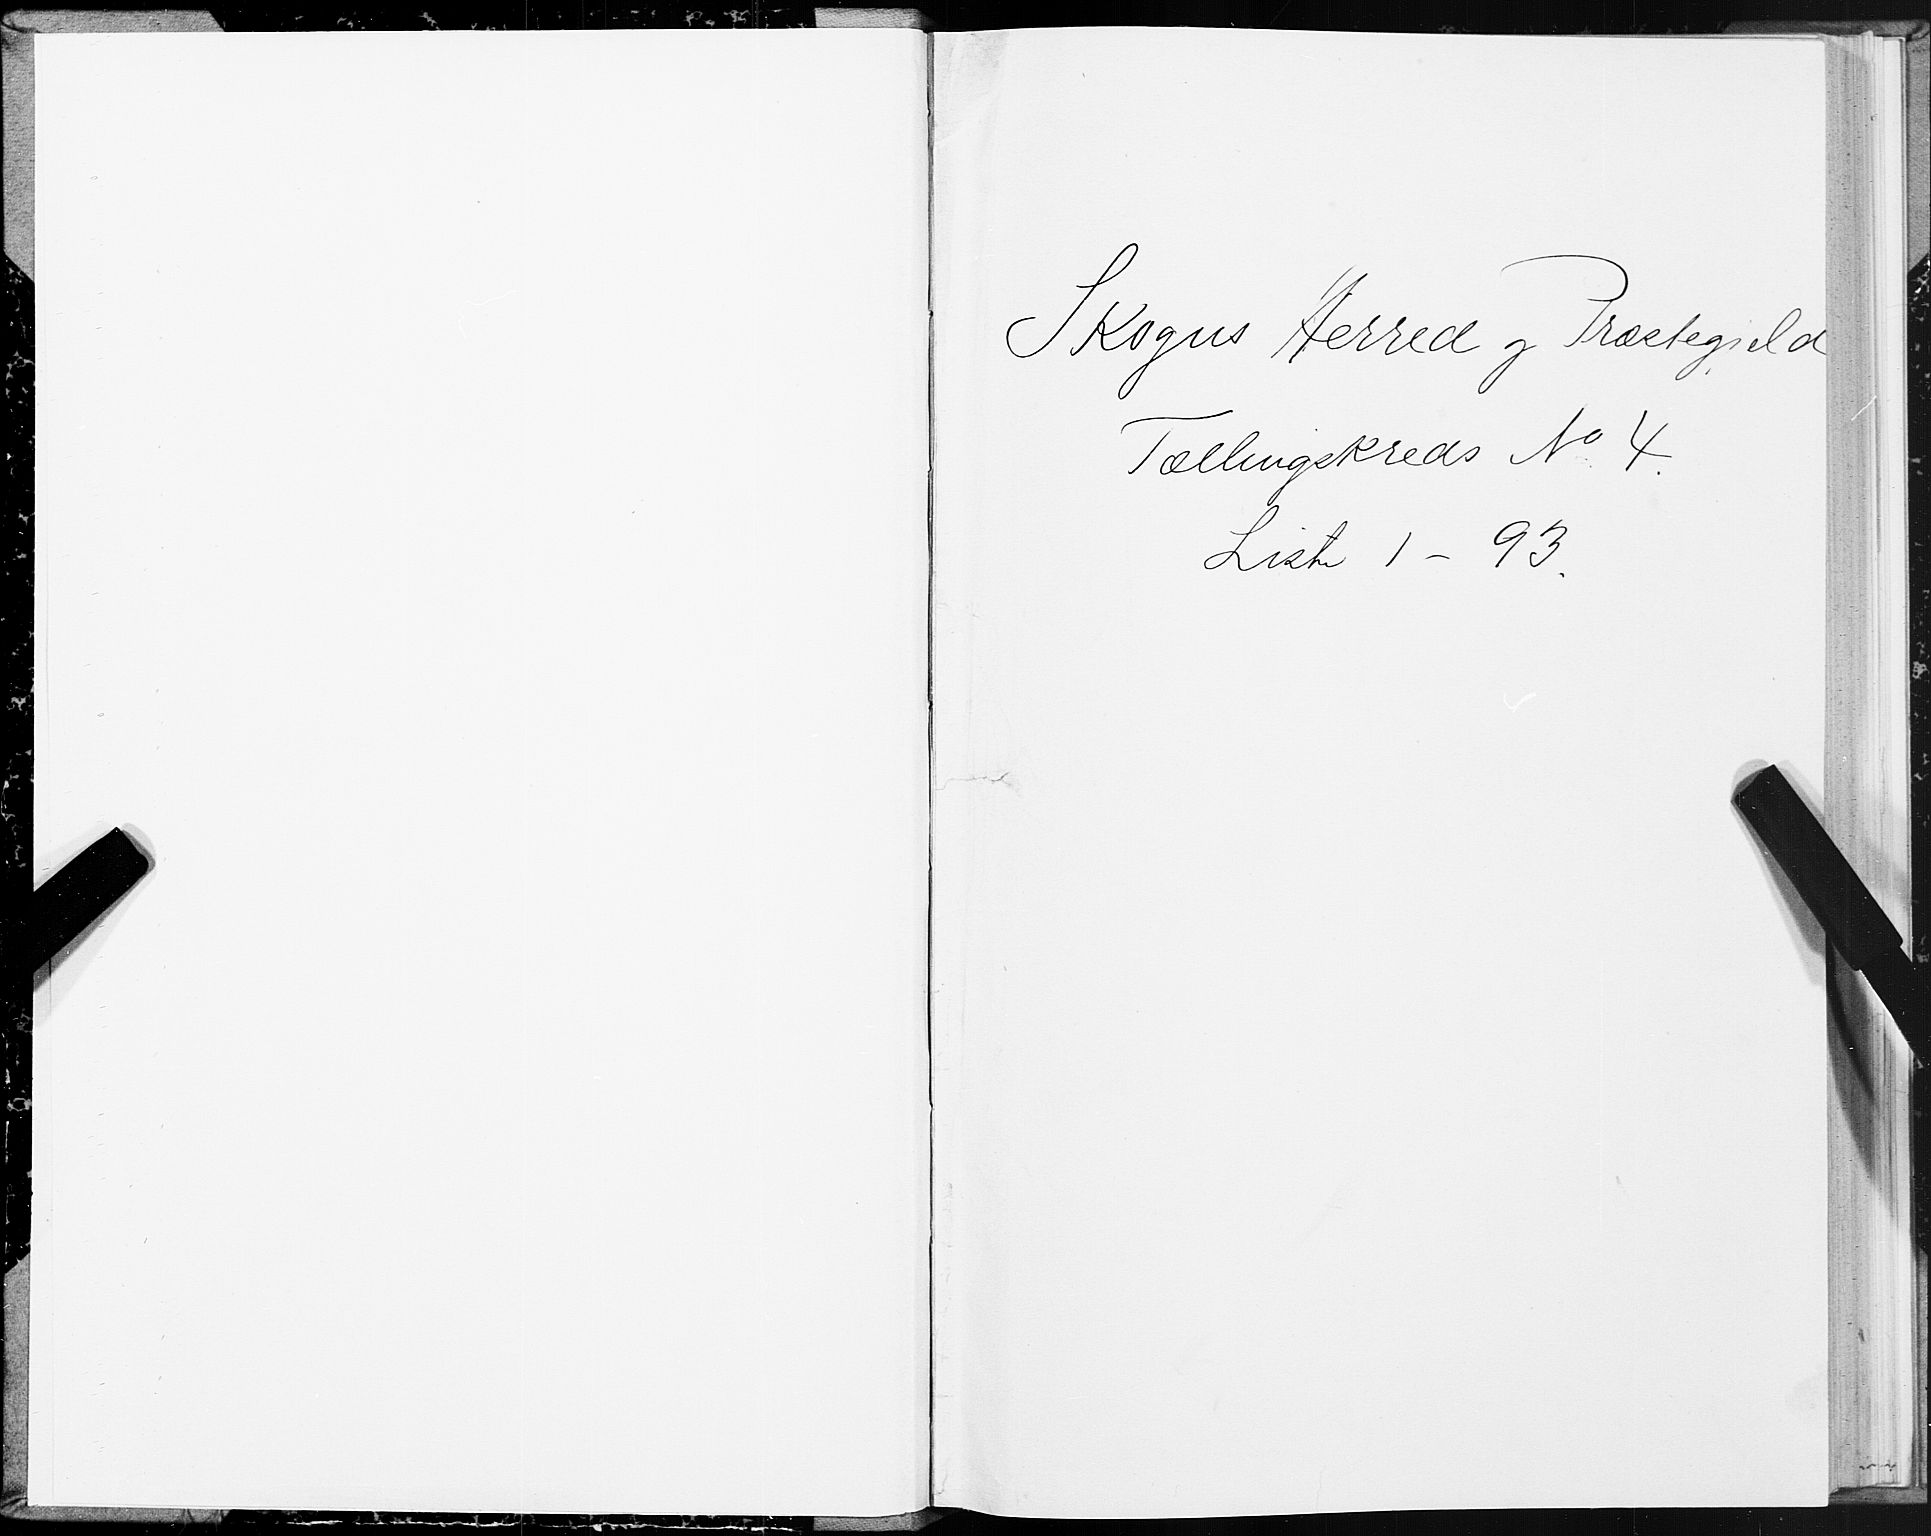 Skogns Herred og Præstegjeld
Tællingskreds No 4.
Liste 1 - 93.